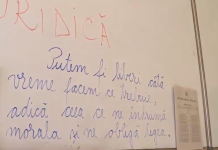 URIDICĂ
Putem fi liberi câtă
vreme facem ce trebuie,
adică ceea ce ne îndrumă
morala și ne obligă legea.